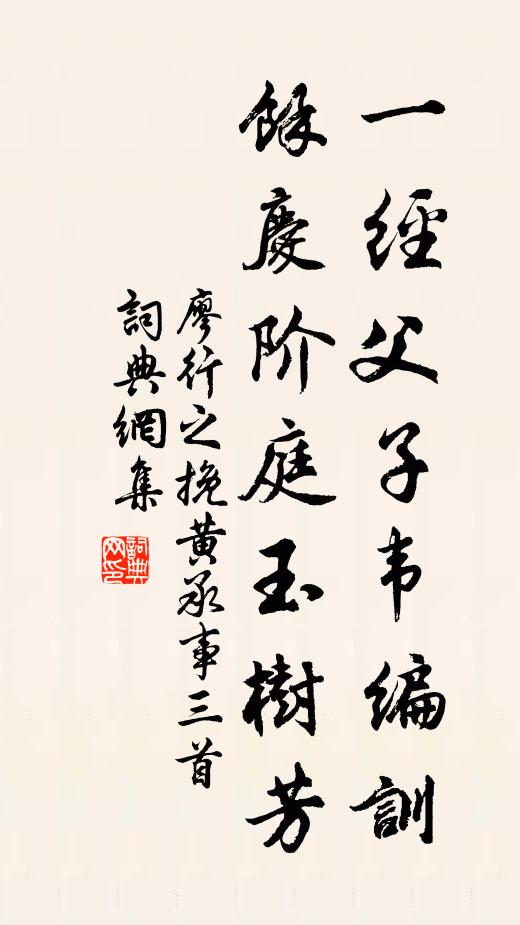 一經父子韦編訓
餘慶阶庭玉樹芳
廖行之挽黄承事三首
詞典網集
詞典网印